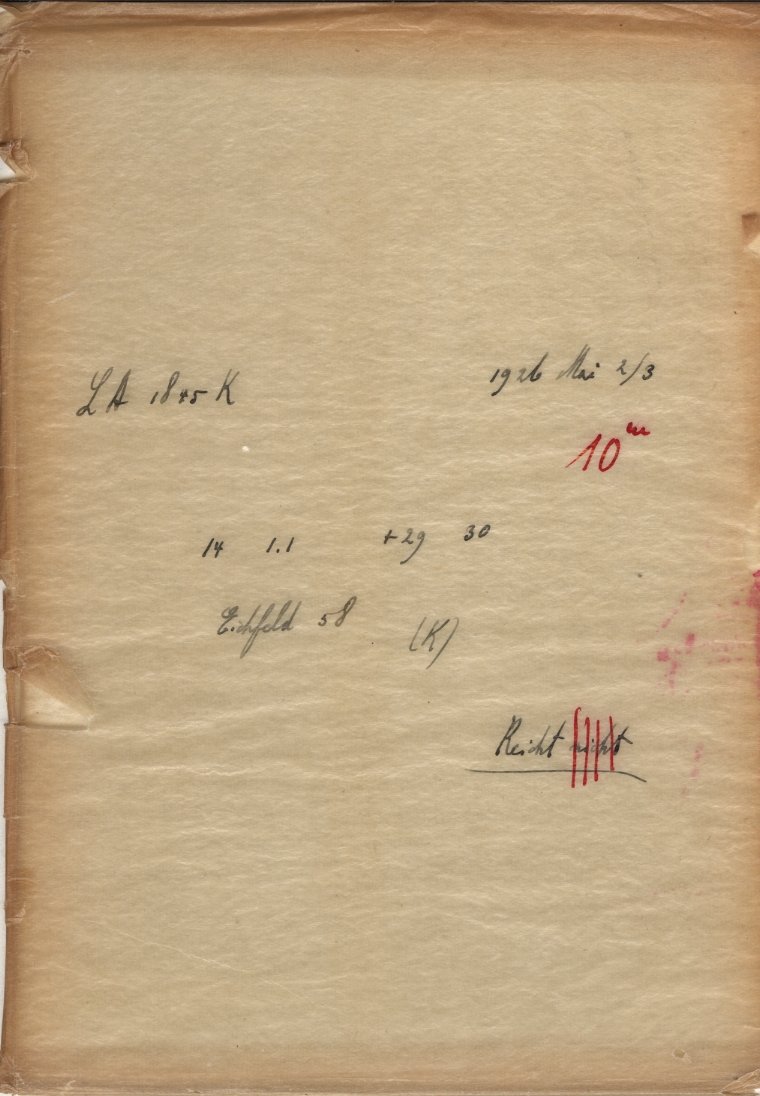 LA 1845 K
1926 Mai 2/3
10ᵐ
14 1.1 +29 30
Eichfeld 58 (K)
Reicht nicht